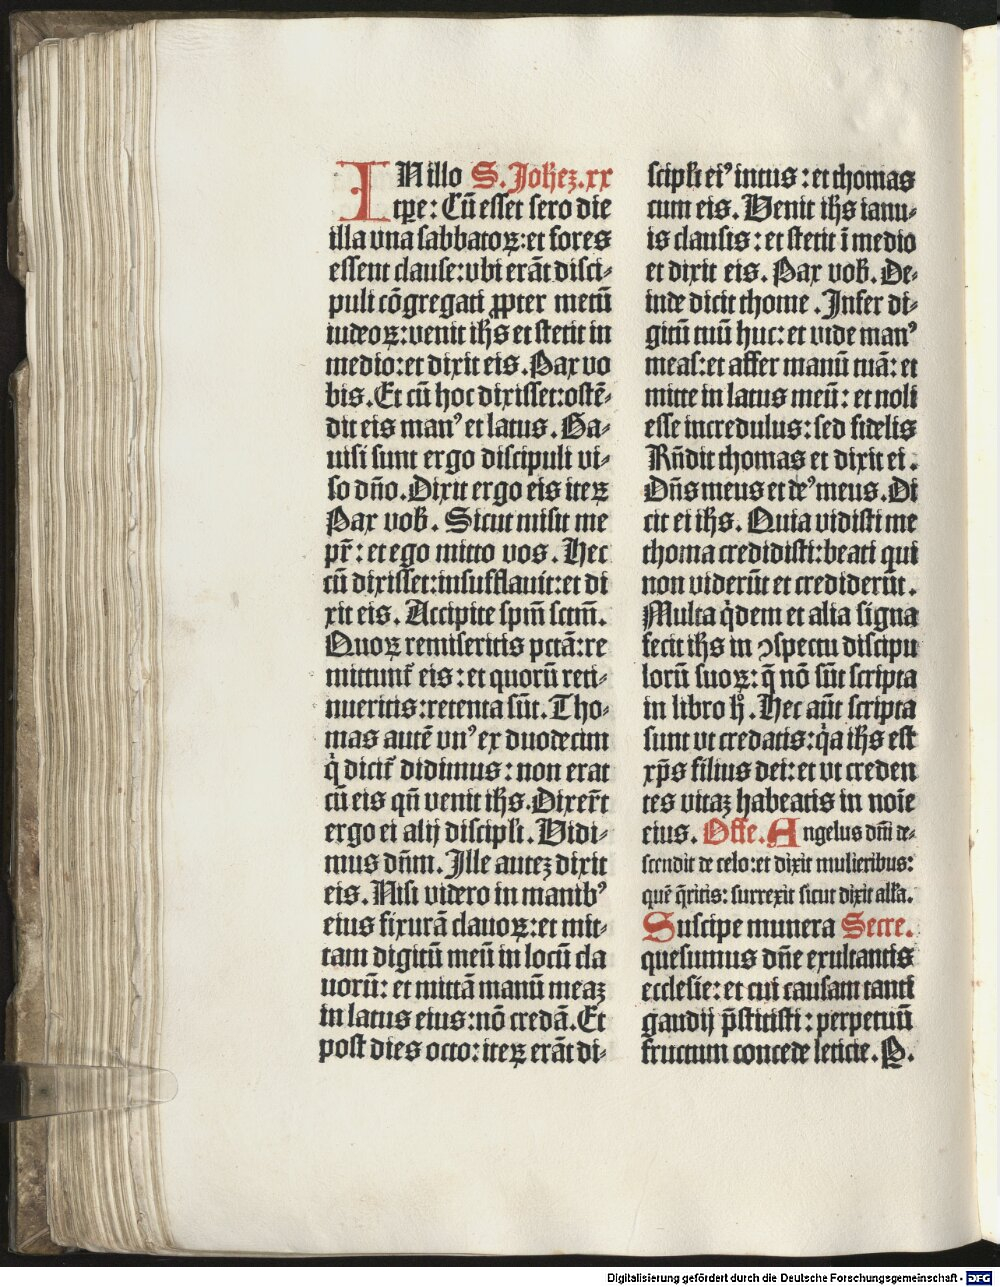 IN illo S. Johēz. xx
tꝑe: Cū esset sero die
illa una sabbatoꝝ: et fores
essent clause: vbi erāt disci⸗
puli cōgregati ꝓpter metū
iudeoꝝ: venit ihs et stetit in
medio: et dixit eis. Pax vo
bis. Et cū hoc dixisset: ostē⸗
dit eis manꝰ et latus. Ga⸗
uisi sunt ergo discipuli vi⸗
so dño. Dixit ergo eis iteꝝ
Pax vob̄. Sicut misit me
pr̄: et ego mitto vos. Hec
cū dixisset: insufflauit: et di
xit eis. Accipite spm̄ sctm̄.
Quoꝝ remiseritis pctā: re
mittunt᷑ eis: et quorū reti⸗
nueritis: retenta sūt. Tho⸗
mas autē vnꝰ ex duodecim
q̇ dicit᷑ didimus: non erat
cū eis qn̄ venit ihs. Dixer̄t
ergo ei alij discipl̄i. Vidi⸗
mus dn̄m. Ille autez dixit
eis. Nisi videro in manibꝰ
eius fixurā clauoꝝ: et mit⸗
tam digitū meū in locū cla
uorū: et mittā manū meaz
in latus eius: nō credā. Et
post dies octo: iteꝝ erāt di⸗
scipl̄i eiꝰ intus: et thomas
cum eis. Venit ihs ianu⸗
is clausis: et stetit ī medio
et dixit eis. Pax vob̄. De⸗
inde dicit thome. Infer di⸗
gitū tuū huc: et vide manꝰ
meas: et affer manū tuā: et
mitte in latus meū: et noli
esse incredulus: sed fidelis
Rñdit thomas et dixit ei.
Dñs meus et deꝰ meus. Di
cit ei ihs. Quia vidisti me
thoma credidisti: beati qui
non viderūt et crediderūt.
Multa q̇dem et alia signa
fecit ihs in ꝯspectu discipu
lorū suoꝝ: q̄ nō sūt scripta
in libro h̥̊. Hec aūt scripta
sunt vt credatis: q̇a ihs est
xp̄s filius dei: et vt creden
tes vitaz habeatis in noīe
eius. Offe. Angelus dn̄i de⸗
scendit de celo: et dixit mulieribus:
quē q̄ritis: surrexit sicut dixit all̄a.
Suscipe munera Secre.
quesumus dñe exultantis
ecclesie: et cui causam tanti
gaudij p̄stitisti: perpetuū
fructum concede leticie. P.
Digitalisierung gefördert durch die Deutsche Forschungsgemeinschaft - DFG